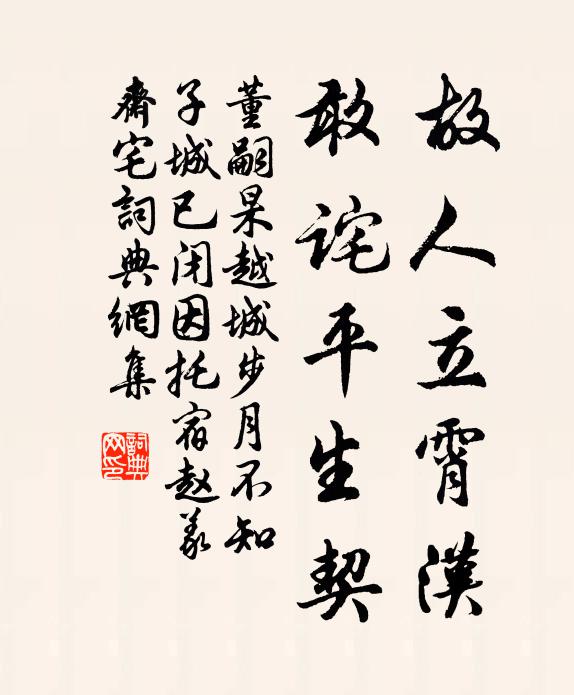 故人立霄漢
敢诧平生契
董嗣杲越城步月不知
子城已闭因托宿赵义
齋宅詞典網集
詞典
网印